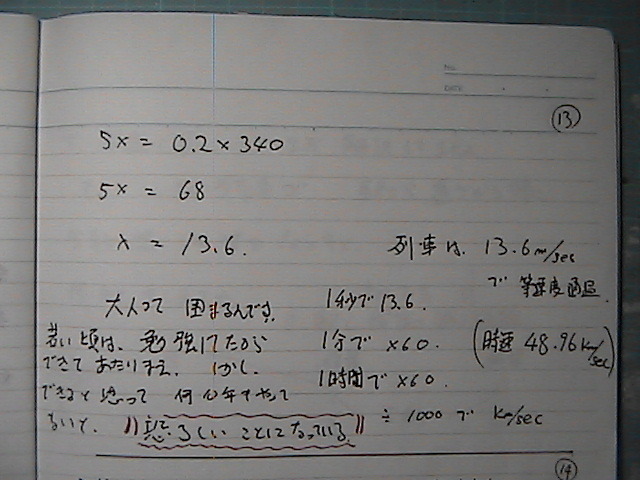 No.
DATE
⑬
5x = 0.2 × 340
5x = 68
x = 13.6.
列車は、13.6m/sec
で 等速度通過.
大人って 困まるんです。
若い頃は、勉強してたから
できて あたりまえ. しかし.
できると思って 何10年も やって
ないと、
"恐ろしい ことに なっている"
1秒で 13.6.
1分で ×60.
1時間で ×60.
÷ 1000 で Km/sec
(時速 48.96 Km/sec)
⑭